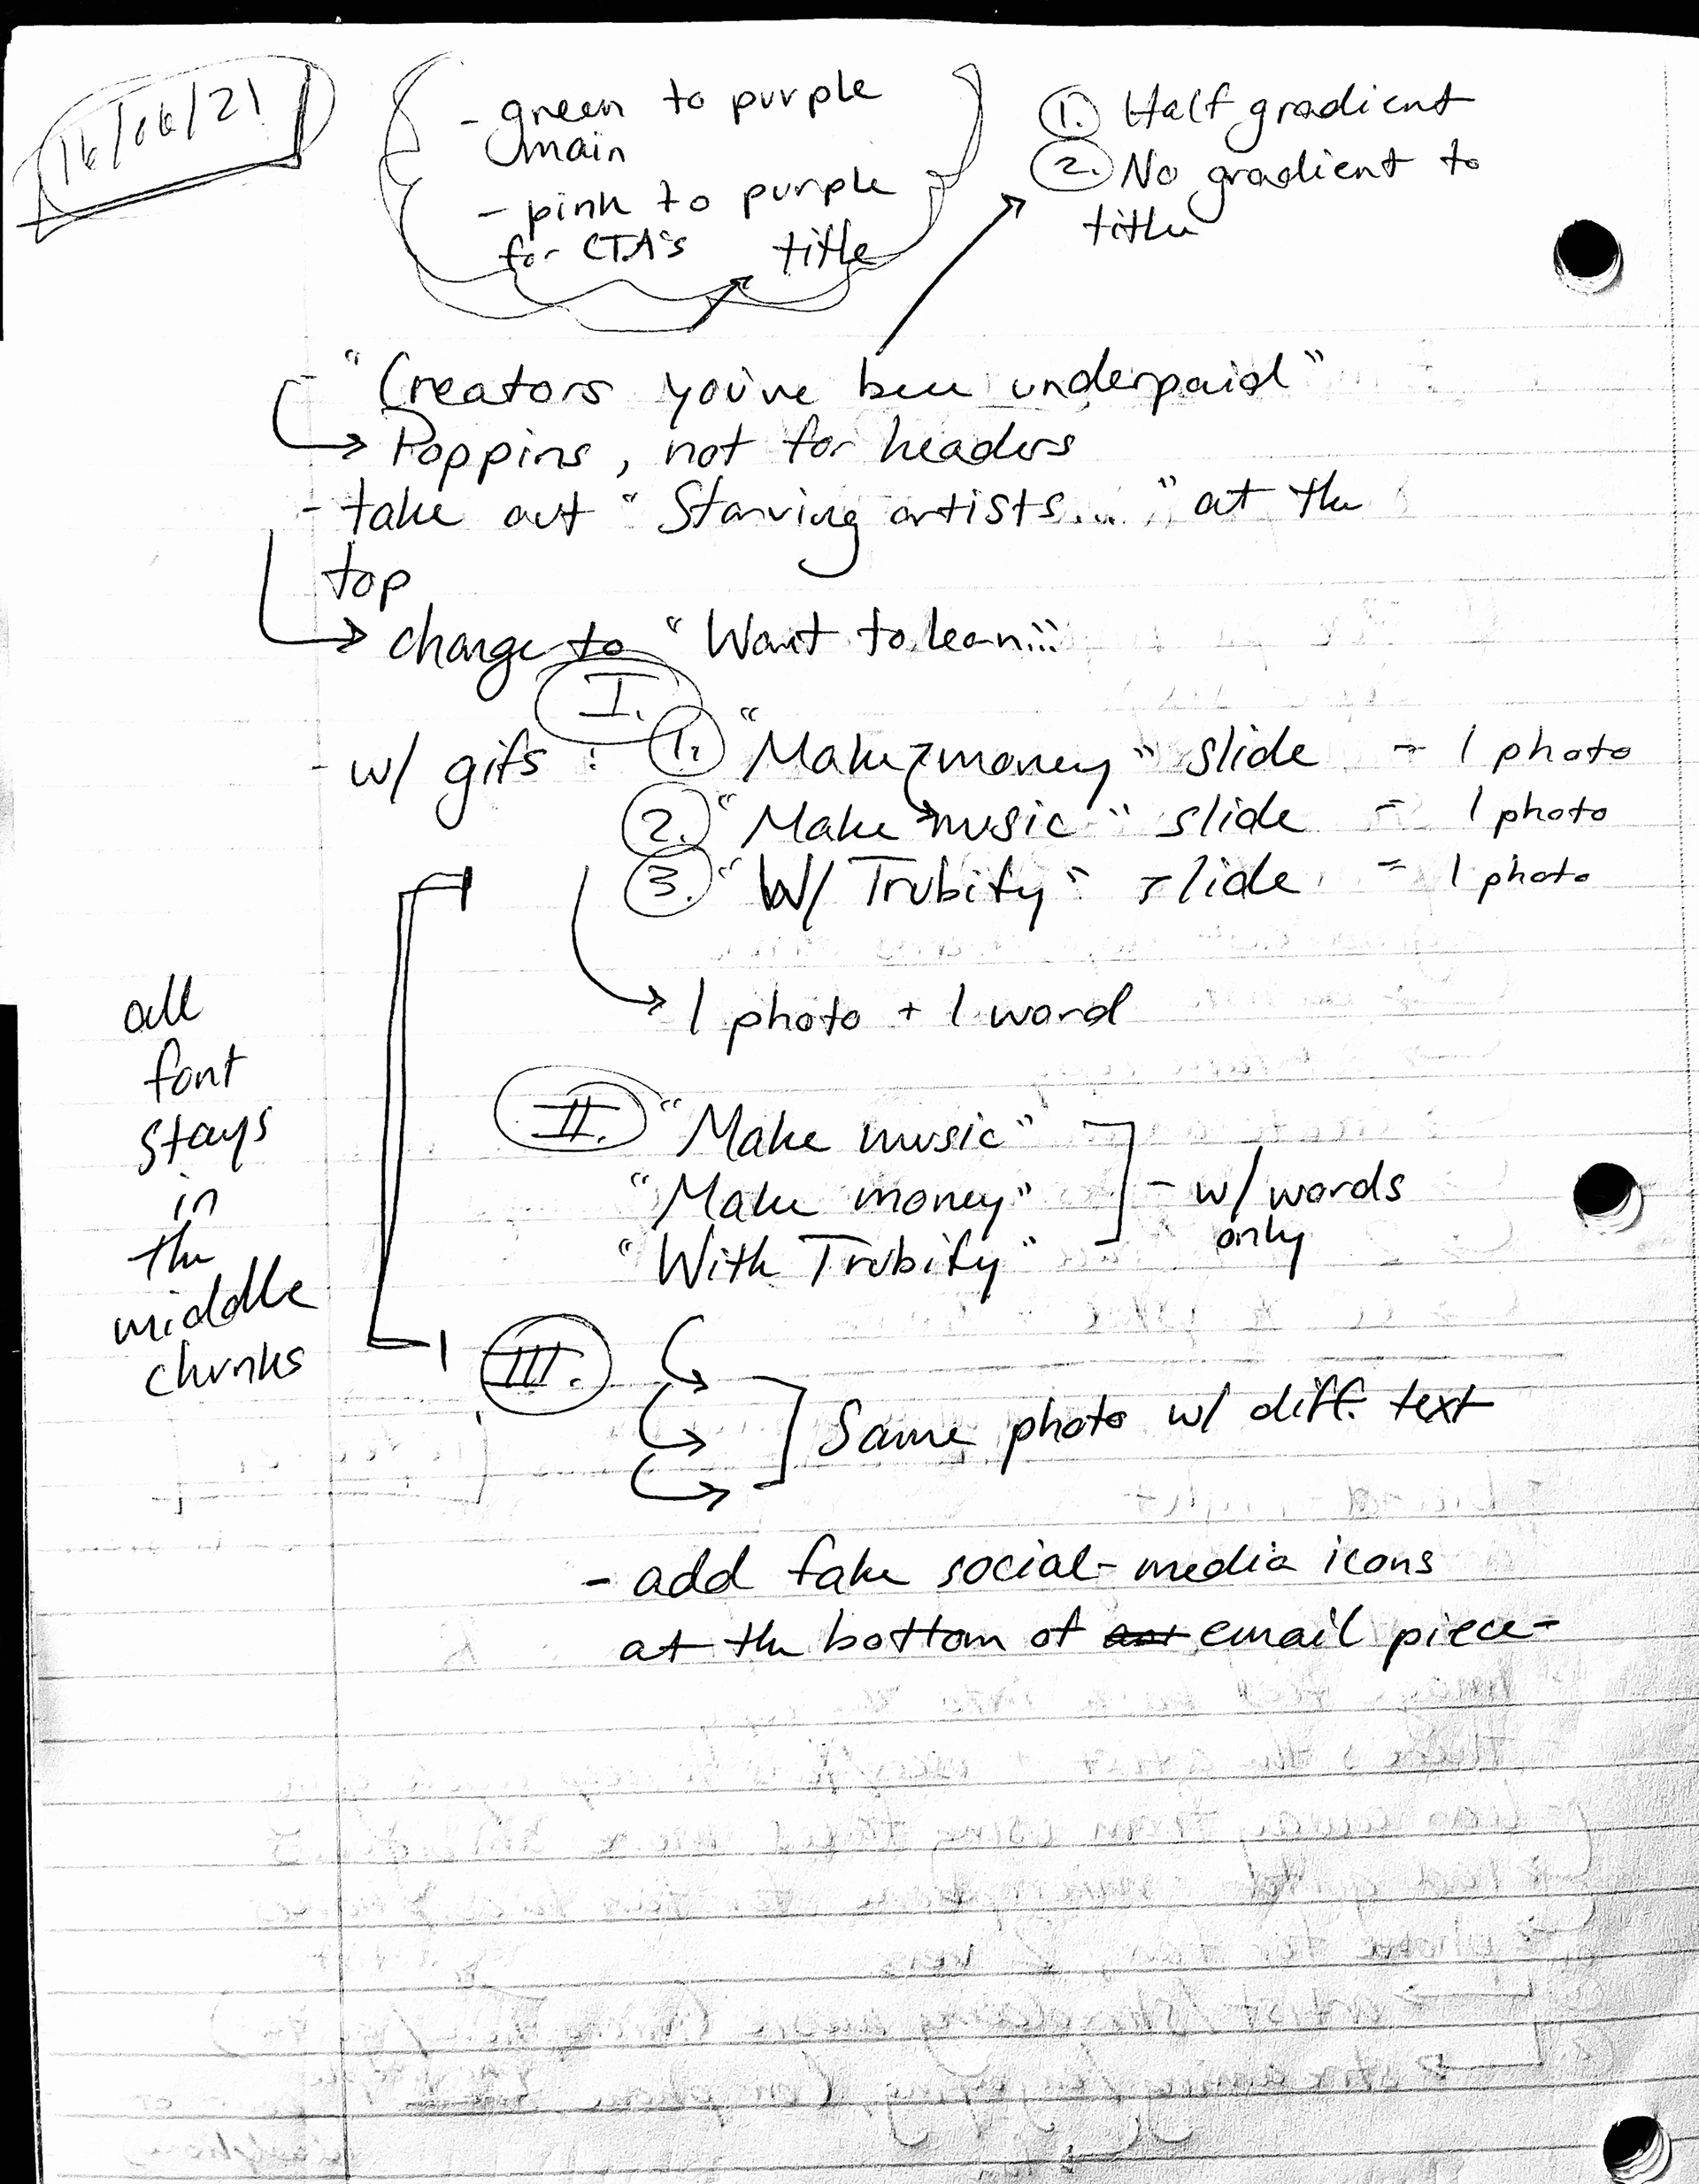 16/06/21
- green to purple
main
- pink to purple
for CTA's title
1. Half gradient
2. No gradient to
title
- "Creators you've been underpaid"
Poppins, not for headers
- take out "Starving artists..." at the
top
change to "Want to learn..."
- w/ gifs : I. 1. "Make money" slide - 1 photo
2. "Make music" slide = 1 photo
3. "W/ Trubify" slide = 1 photo
1 photo + 1 word
all
font
stays
in
the
middle
chunks
II. "Make music"
"Make money" - w/ words
only
"With Trubify"
III.
Same photo w/ diff. text
- add fake social-media icons
at the bottom of email piece-